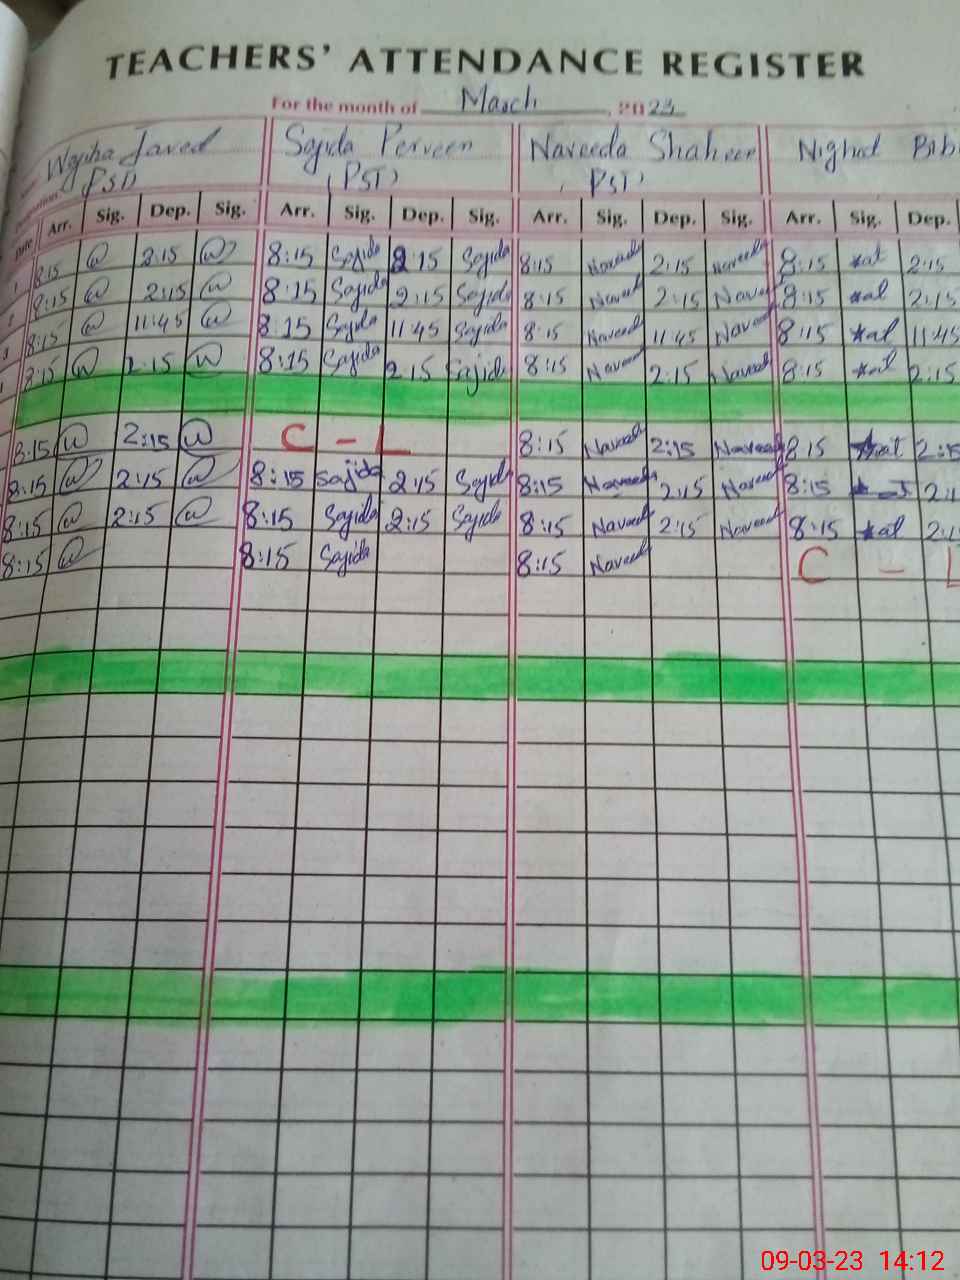 TEACHERS' ATTENDANCE REGISTER
For the month of March, 2023
Wajiha Javed Sajida Perveen Naveeda Shaheen Nighid Bibi
(PST) (PST) (PST)
Date Arr. Sig. Dep. Sig. Arr. Sig. Dep. Sig. Arr. Sig. Dep. Sig. Arr. Sig. Dep.
1 8:15 w 2:15 w 8:15 Sajida 2:15 Sajida 8:15 Naveed 2:15 Naveed 8:15 2:15
2 8:15 w 2:15 w 8:15 Sajida 2:15 Sajida 8:15 Naveed 2:15 Naveed 8:15 2:15
3 8:15 w 11:45 w 8:15 Sajida 11:45 Sajida 8:15 Naveed 11:45 Naveed 8:15 11:45
8:15 w 2:15 w 8:15 Sajida 2:15 Sajida 8:15 Naveed 2:15 Naveed 8:15 2:15
8:15 w 2:15 w C - L 8:15 Naveed 2:15 Naveed 8:15 2:15
8:15 w 2:15 w 8:15 Sajida 2:15 Sajida 8:15 Naveed 2:15 Naveed 8:15
8:15 w 2:15 w 8:15 Sajida 2:15 Sajida 8:15 Naveed 2:15 Naveed 8:15
8:15 w 8:15 Sajida 8:15 Naveed C - L
09-03-23 14:12